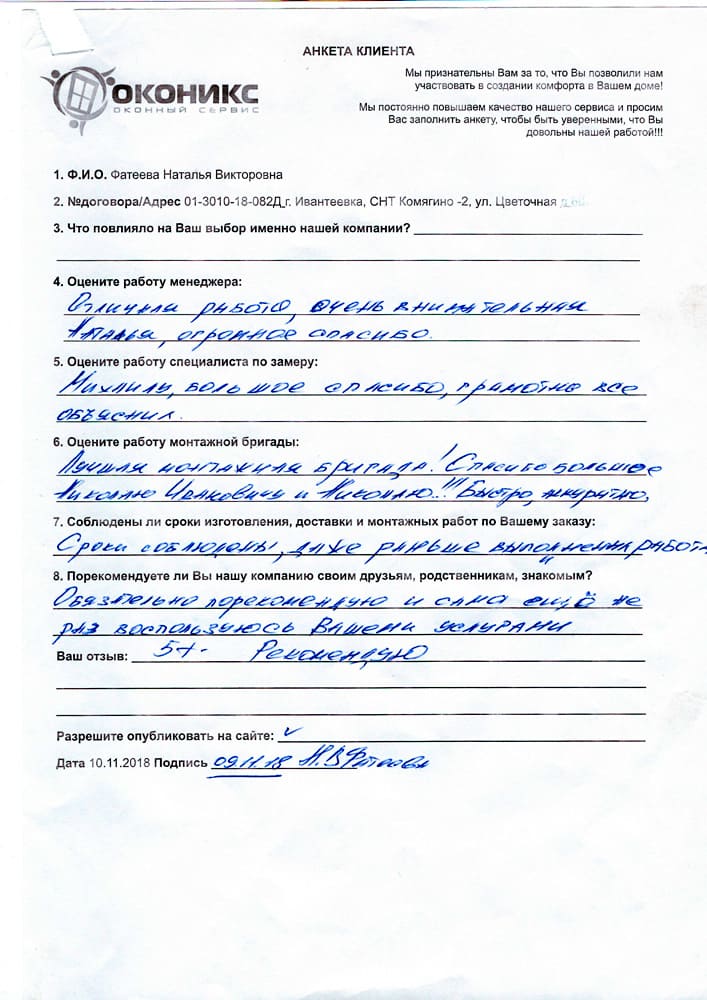 АНКЕТА КЛИЕНТА
ОКОНИКС
ОКОННЫЙ СЕРВИС
Мы признательны Вам за то, что Вы позволили нам
участвовать в создании комфорта в Вашем доме!
Мы постоянно повышаем качество нашего сервиса и просим
Вас заполнить анкету, чтобы быть уверенными, что Вы
довольны нашей работой!!!
1. Ф.И.О. Фатеева Наталья Викторовна
2. №договора/Адрес 01-3010-18-082Д г. Ивантеевка, СНТ Комягино -2, ул. Цветочная
3. Что повлияло на Ваш выбор именно нашей компании?
4. Оцените работу менеджера:
Отличная работа, очень внимательная
Наталья, огромное спасибо.
5. Оцените работу специалиста по замеру:
Михаилу, большое спасибо, грамотно все
объяснил.
6. Оцените работу монтажной бригады:
Лучшая монтажная бригада! Спасибо большое
Николаю Ивановичу и Николаю..!!! Быстро, аккуратно.
7. Соблюдены ли сроки изготовления, доставки и монтажных работ по Вашему заказу:
Сроки соблюдены, даже раньше выполненна работа
8. Порекомендуете ли Вы нашу компанию своим друзьям, родственникам, знакомым?
Обязательно порекомендую и сама ещё не
раз воспользуюсь Вашеми услугами
Ваш отзыв: 5+. Рекомендую
Разрешите опубликовать на сайте: ✓
Дата 10.11.2018 Подпись 09.11.18 Н.В Фатеева